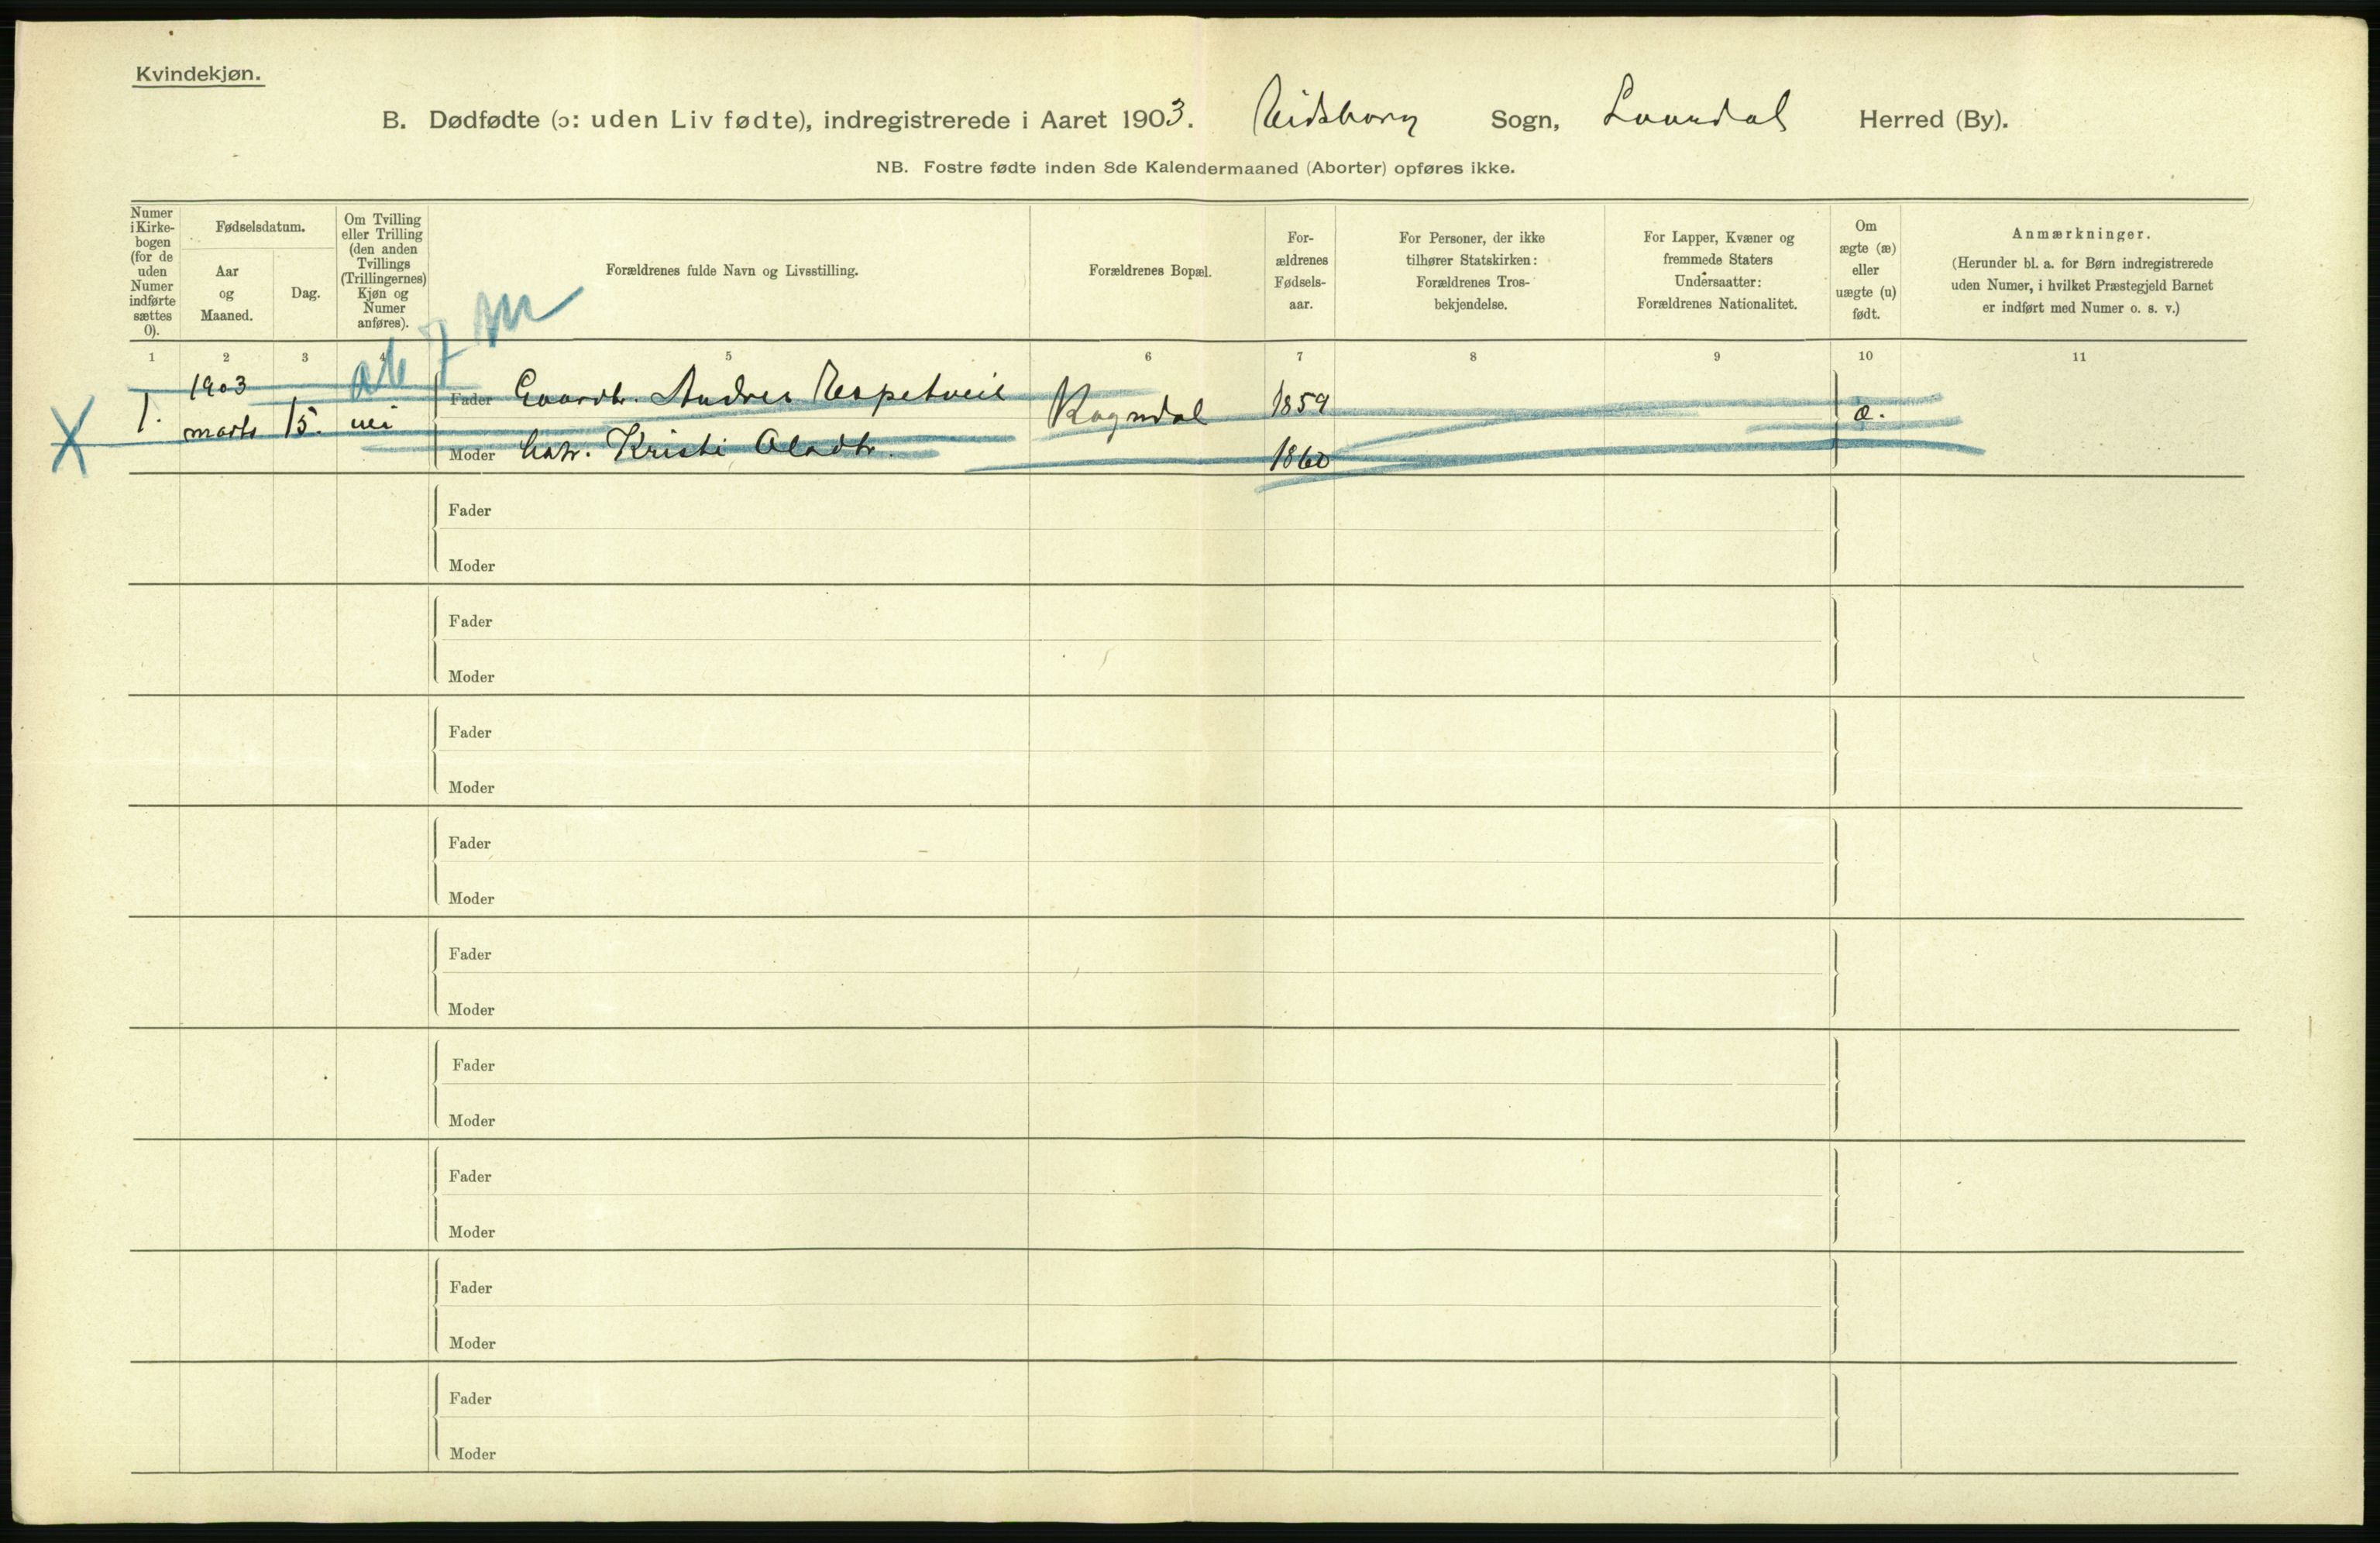 Kvindekjøn.
B. Dødfødte (ɔ: uden Liv fødte), indregistrerede i Aaret 1903. Eidsborg Sogn, Laardal Herred (By).
NB. Fostre fødte inden 8de Kalendermaaned (Aborter) opføres ikke.
Numer i Kirke- bogen (for de uden Numer indførte sættes 0).
Fødselsdatum.
Aar og Maaned.
Dag.
Om Tvilling eller Trilling (den anden Tvillings (Trillingernes) Kjøn og Numer anføres).
Forældrenes fulde Navn og Livsstilling.
Forældrenes Bopæl.
For- ældrenes Fødsels- aar.
For Personer, der ikke tilhører Statskirken: Forældrenes Tros- bekjendelse.
For Lapper, Kvæner og fremmede Staters Undersaatter: Forældrenes Nationalitet.
Om ægte (æ) eller uægte (u) født.
Anmærkninger.
(Herunder bl. a. for Børn indregistrerede uden Numer, i hvilket Præstegjeld Barnet er indført med Numer o. s. v.)
1 2 3 4 5 6 7 8 9 10 11
1. 1903 marts 15. nei
Fader Gaardbr. Andres Espetveit Rogndal 1859 æ.
Moder Kristi Olsdtr. 1860
Fader
Moder
Fader
Moder
Fader
Moder
Fader
Moder
Fader
Moder
Fader
Moder
Fader
Moder
Fader
Moder
Fader
Moder